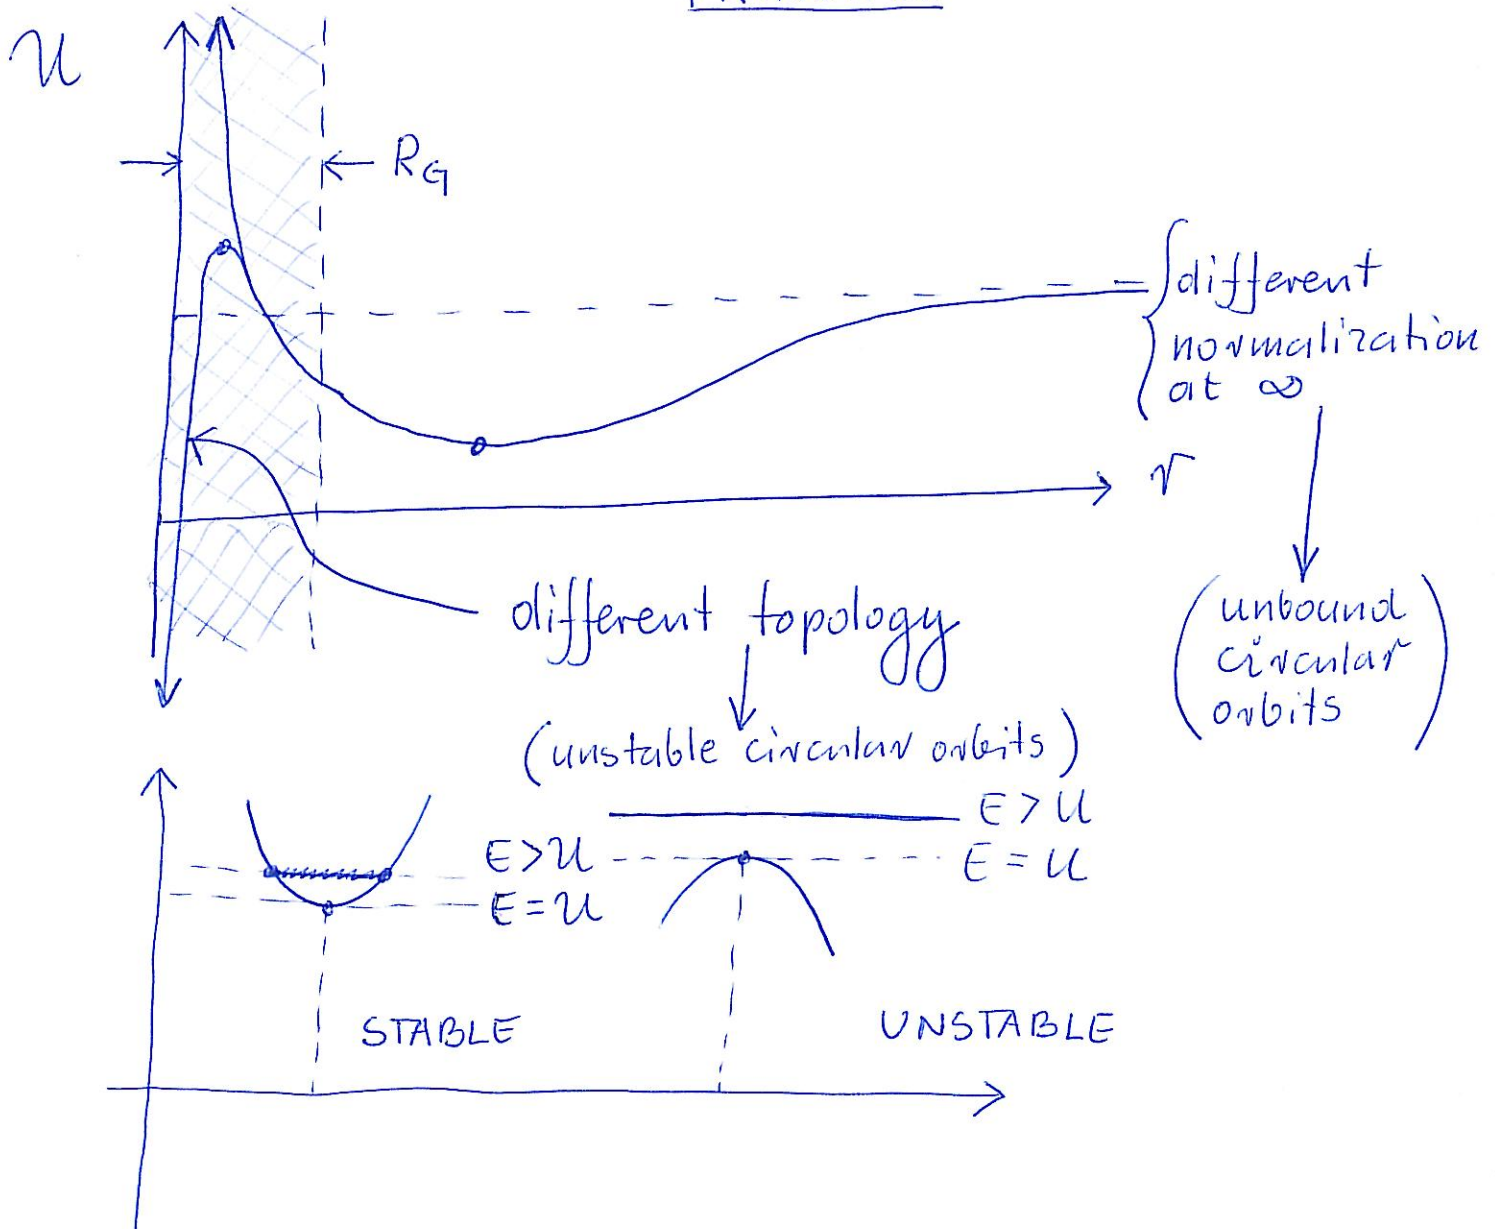 U
R_G
different
normalization
at ∞
r
different topology
(unbound
circular
orbits)
(unstable circular orbits)
E > U
E > U
E = U
E = U
STABLE
UNSTABLE